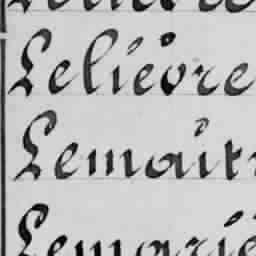 Lelièvre
Lemait
Lemarié